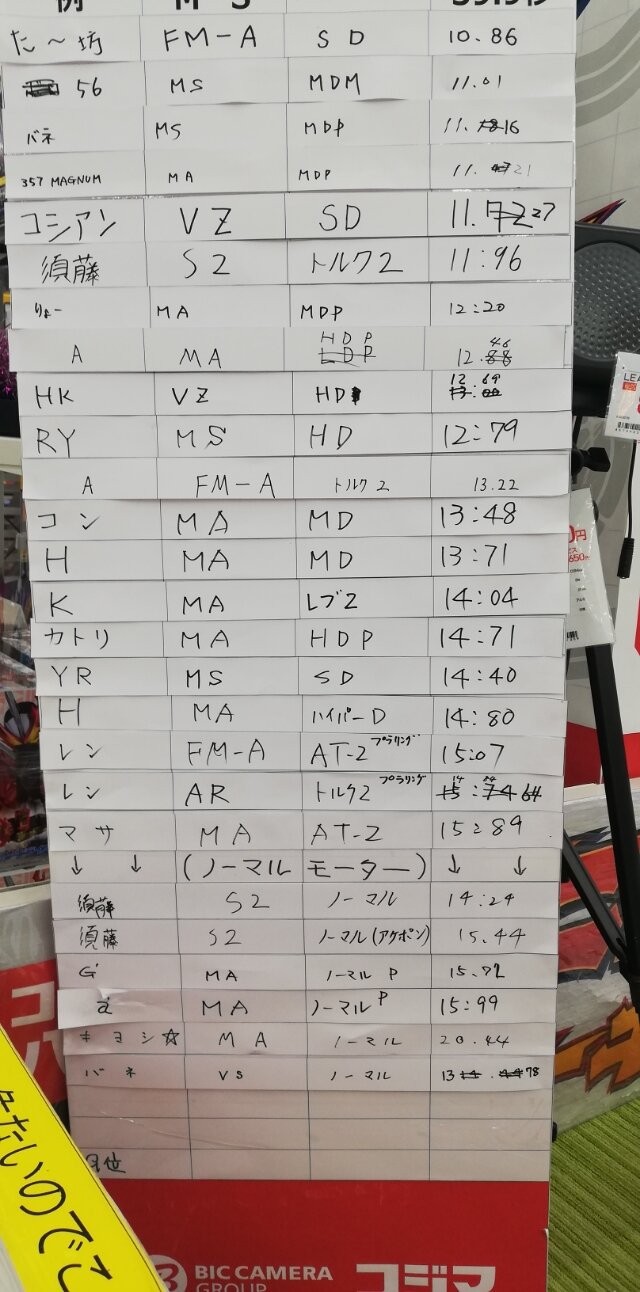 例 M S 99.99秒
た〜坊 FM-A SD 10.86
56 MS MDM 11.01
バネ MS MDP 11.16
357 MAGNUM MA MDP 11.21
コシアン VZ SD 11.27
須藤 S2 トルク2 11:96
りょー MA MDP 12:20
A MA HDP 12.46
HK VZ HD 12:69
RY MS HD 12:79
A FM-A トルク2 13.22
コン MA MD 13:48
H MA MD 13:71
K MA レブ2 14:04
カトリ MA HDP 14:71
YR MS SD 14:40
H MA ハイパーD 14:80
レン FM-A AT-2 プラリング 15:07
レン AR トルク2 プラリング 64
マサ MA AT-2 15:89
↓ ↓ (ノーマル モーター) ↓ ↓
須藤 S2 ノーマル 14:24
須藤 S2 ノーマル(アケポン) 15.44
G MA ノーマル P 15.72
MA ノーマル P 15:99
キヨシ☆ MA ノーマル 20.44
バネ VS ノーマル 13.78
位
BIC CAMERA
GROUP
コジマ
たいのでこ